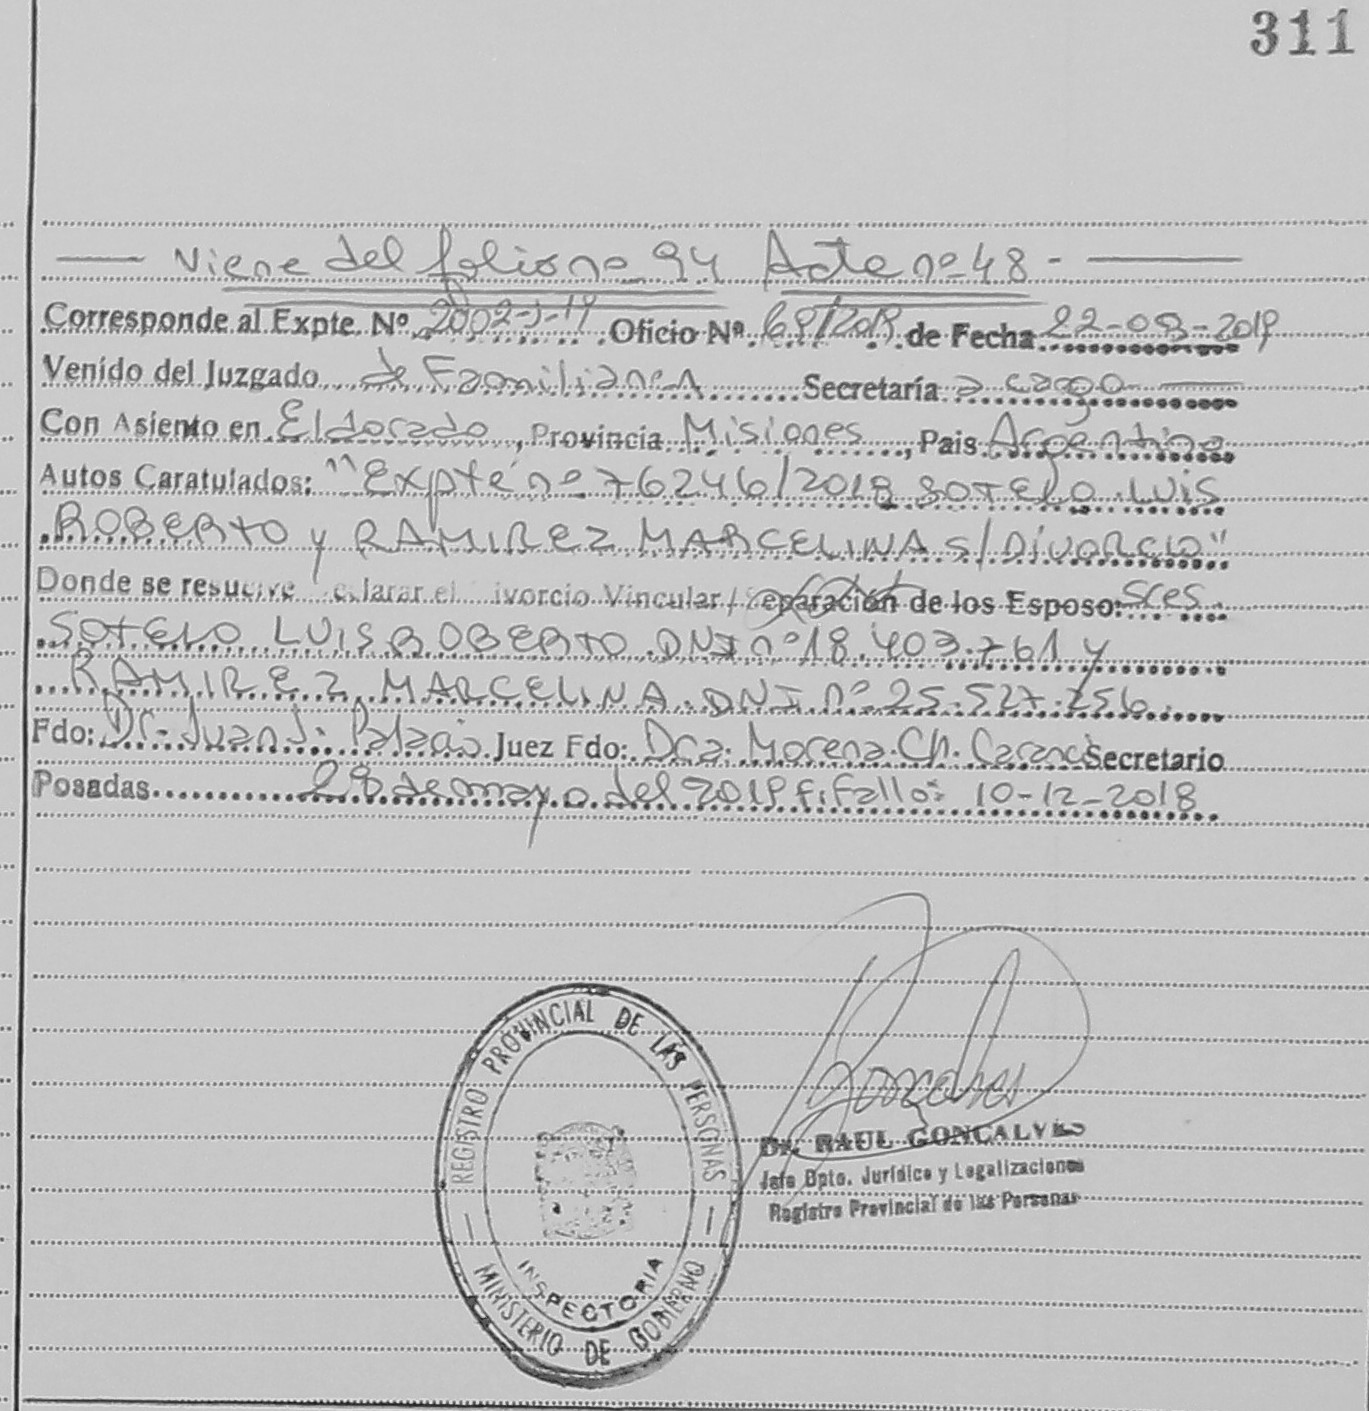 311
Viene del folio nº 94 Acta nº 48 -
Corresponde al Expte. Nº 2002-J-19 Oficio Nº 69/2019 de Fecha 22-03-2019
Venido del Juzgado de Familia Secretaría a cargo
Con Asiento en Eldorado, Provincia Misiones, Pais Argentina
Autos Caratulados: "Expte nº 76246/2018 SOTELO LUIS
ROBERTO y RAMIREZ MARCELINA S/ DIVORCIO"
Donde se resuelve eclarar el ivorcio Vincular / Separación de los Esposo: Sres
SOTELO LUIS ROBERTO DNI nº 18.403.761 y
RAMIREZ MARCELINA DNI nº 25.527.256.
Fdo: Dr. Juan J. Juez Fdo: Dra. Morena Ch. Secretario
Posadas 28 de mayo del 2019 F. Fallo: 10-12-2018
REGISTRO PROVINCIAL DE LAS PERSONAS
INSPECTORIA
MINISTERIO DE GOBIERNO
Dr. RAUL GONCALVES
Jefe Dpto. Jurídico y Legalizaciones
Registro Provincial de las Personas